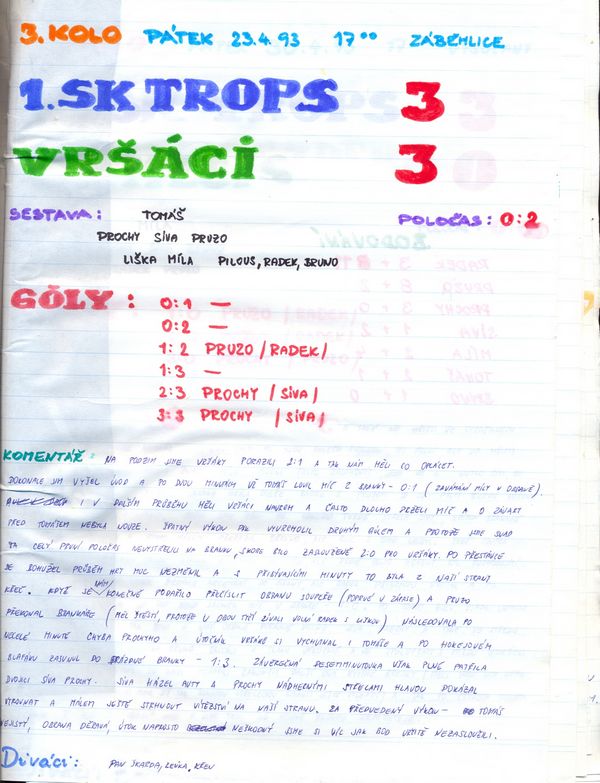 3. KOLO PÁTEK 23.4.93 17⁰⁰ ZÁBĚHLICE
1. SK TROPS 3
VRŠÁCI 3
SESTAVA: TOMÁŠ POLOČAS: 0:2
PROCHY SÍVA PRUZO
LIŠKA MÍLA PILOUS, RADEK, BRUNO
GÓLY: 0:1 —
0:2 —
1:2 PRUZO /RADEK/
1:3 —
2:3 PROCHY /SÍVA/
3:3 PROCHY /SÍVA/
KOMENTÁŘ: NA PODZIM JSME VRŠÁKY PORAZILI 2:1 A TAK NÁM MĚLI CO OPLÁCET.
DOKONALE JIM VYŠEL ÚVOD A PO DVOU MINUTÁCH UŽ TOMÁŠ LOVIL MÍČ Z BRANKY - 0:1 (ZAVÁHÁNÍ MÍLY V OBRANĚ).
I V DALŠÍM PRŮBĚHU MĚLI VRŠÁCI NAVRCH A ČASTO DLOUHO DRŽELI MÍČ A O ZÁVARY
PŘED TOMÁŠEM NEBYLA NOUZE. ŠPATNÝ VÝKON PAK VYVRCHOLIL DRUHÝM GÓLEM A PROTOŽE JSME SNAD
ZA CELÝ PRVNÍ POLOČAS NEVYSTŘELILI NA BRANKU, SKÓRE BYLO ZASLOUŽENÉ 2:0 PRO VRŠÁKY. PO PŘESTÁVCE
SE BOHUŽEL PRŮBĚH HRY MOC NEZMĚNIL A S PŘIBÝVAJÍCÍMI MINUTY TO BYLA Z NAŠÍ STRANY
KŘEČ. KDYŽ SE NÁM KONEČNĚ PODAŘILO PŘEČÍSLIT OBRANU SOUPEŘE (POPRVÉ V ZÁPASE) A PRUZO
PŘEKONAL BRANKÁŘE (MĚL ŠTĚSTÍ, PROTOŽE U OBOU TYČÍ ZÍVALI VOLNÍ RADEK S LIŠKOU) NÁSLEDOVALA PO
NECELÉ MINUTĚ CHYBA PROCHYHO A ÚTOČNÍK VRŠÁKŮ SI VYCHUTNAL I TOMÁŠE A PO HOKEJOVÉM
BLAFÁKU ZASUNUL DO PRÁZDNÉ BRANKY - 1:3. ZÁVĚREČNÁ DESETIMINUTOVKA VŠAK PLNĚ PATŘILA
DVOJICI SÍVA PROCHY. SÍVA HÁZEL AUTY A PROCHY NÁDHERNÝMI STŘELAMI HLAVOU DOKÁZAL
VYROVNAT A MÁLEM JEŠTĚ STRHNOUT VÍTĚZSTVÍ NA NAŠÍ STRANU. ZA PŘEDVEDENÝ VÝKON - TOMÁŠ
NEJISTÝ, OBRANA DĚRAVÁ, ÚTOK NAPROSTO NEŠKODNÝ JSME SI VÍC JAK BOD URČITĚ NEZASLOUŽILI.
Diváci: PAN SKARDA, LENKA,